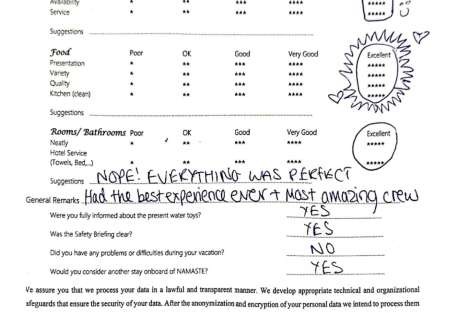 Availability * ** *** **** *****
Service * ** *** **** *****
Suggestions
Food Poor OK Good Very Good Excellent
Presentation * ** *** **** *****
Variety * ** *** **** *****
Quality * ** *** **** *****
Kitchen (clean) * ** *** **** *****
Suggestions
Rooms/ Bathrooms Poor OK Good Very Good Excellent
Neatly * ** *** **** *****
Hotel Service
(Towels, Bed,...) * ** *** **** *****
Suggestions NOPE! EVERYTHING WAS PERFECT
General Remarks Had the best experience ever + Most amazing crew
Were you fully informed about the present water toys? YES
Was the Safety Briefing clear? YES
Did you have any problems or difficulties during your vacation? NO
Would you consider another stay onboard of NAMASTE? YES
We assure you that we process your data in a lawful and transparent manner. We develop appropriate technical and organizational
safeguards that ensure the security of your data. After the anonymization and encryption of your personal data we intend to process them